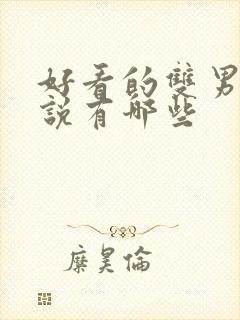 好看的雙男
說有哪些
糜昊倫